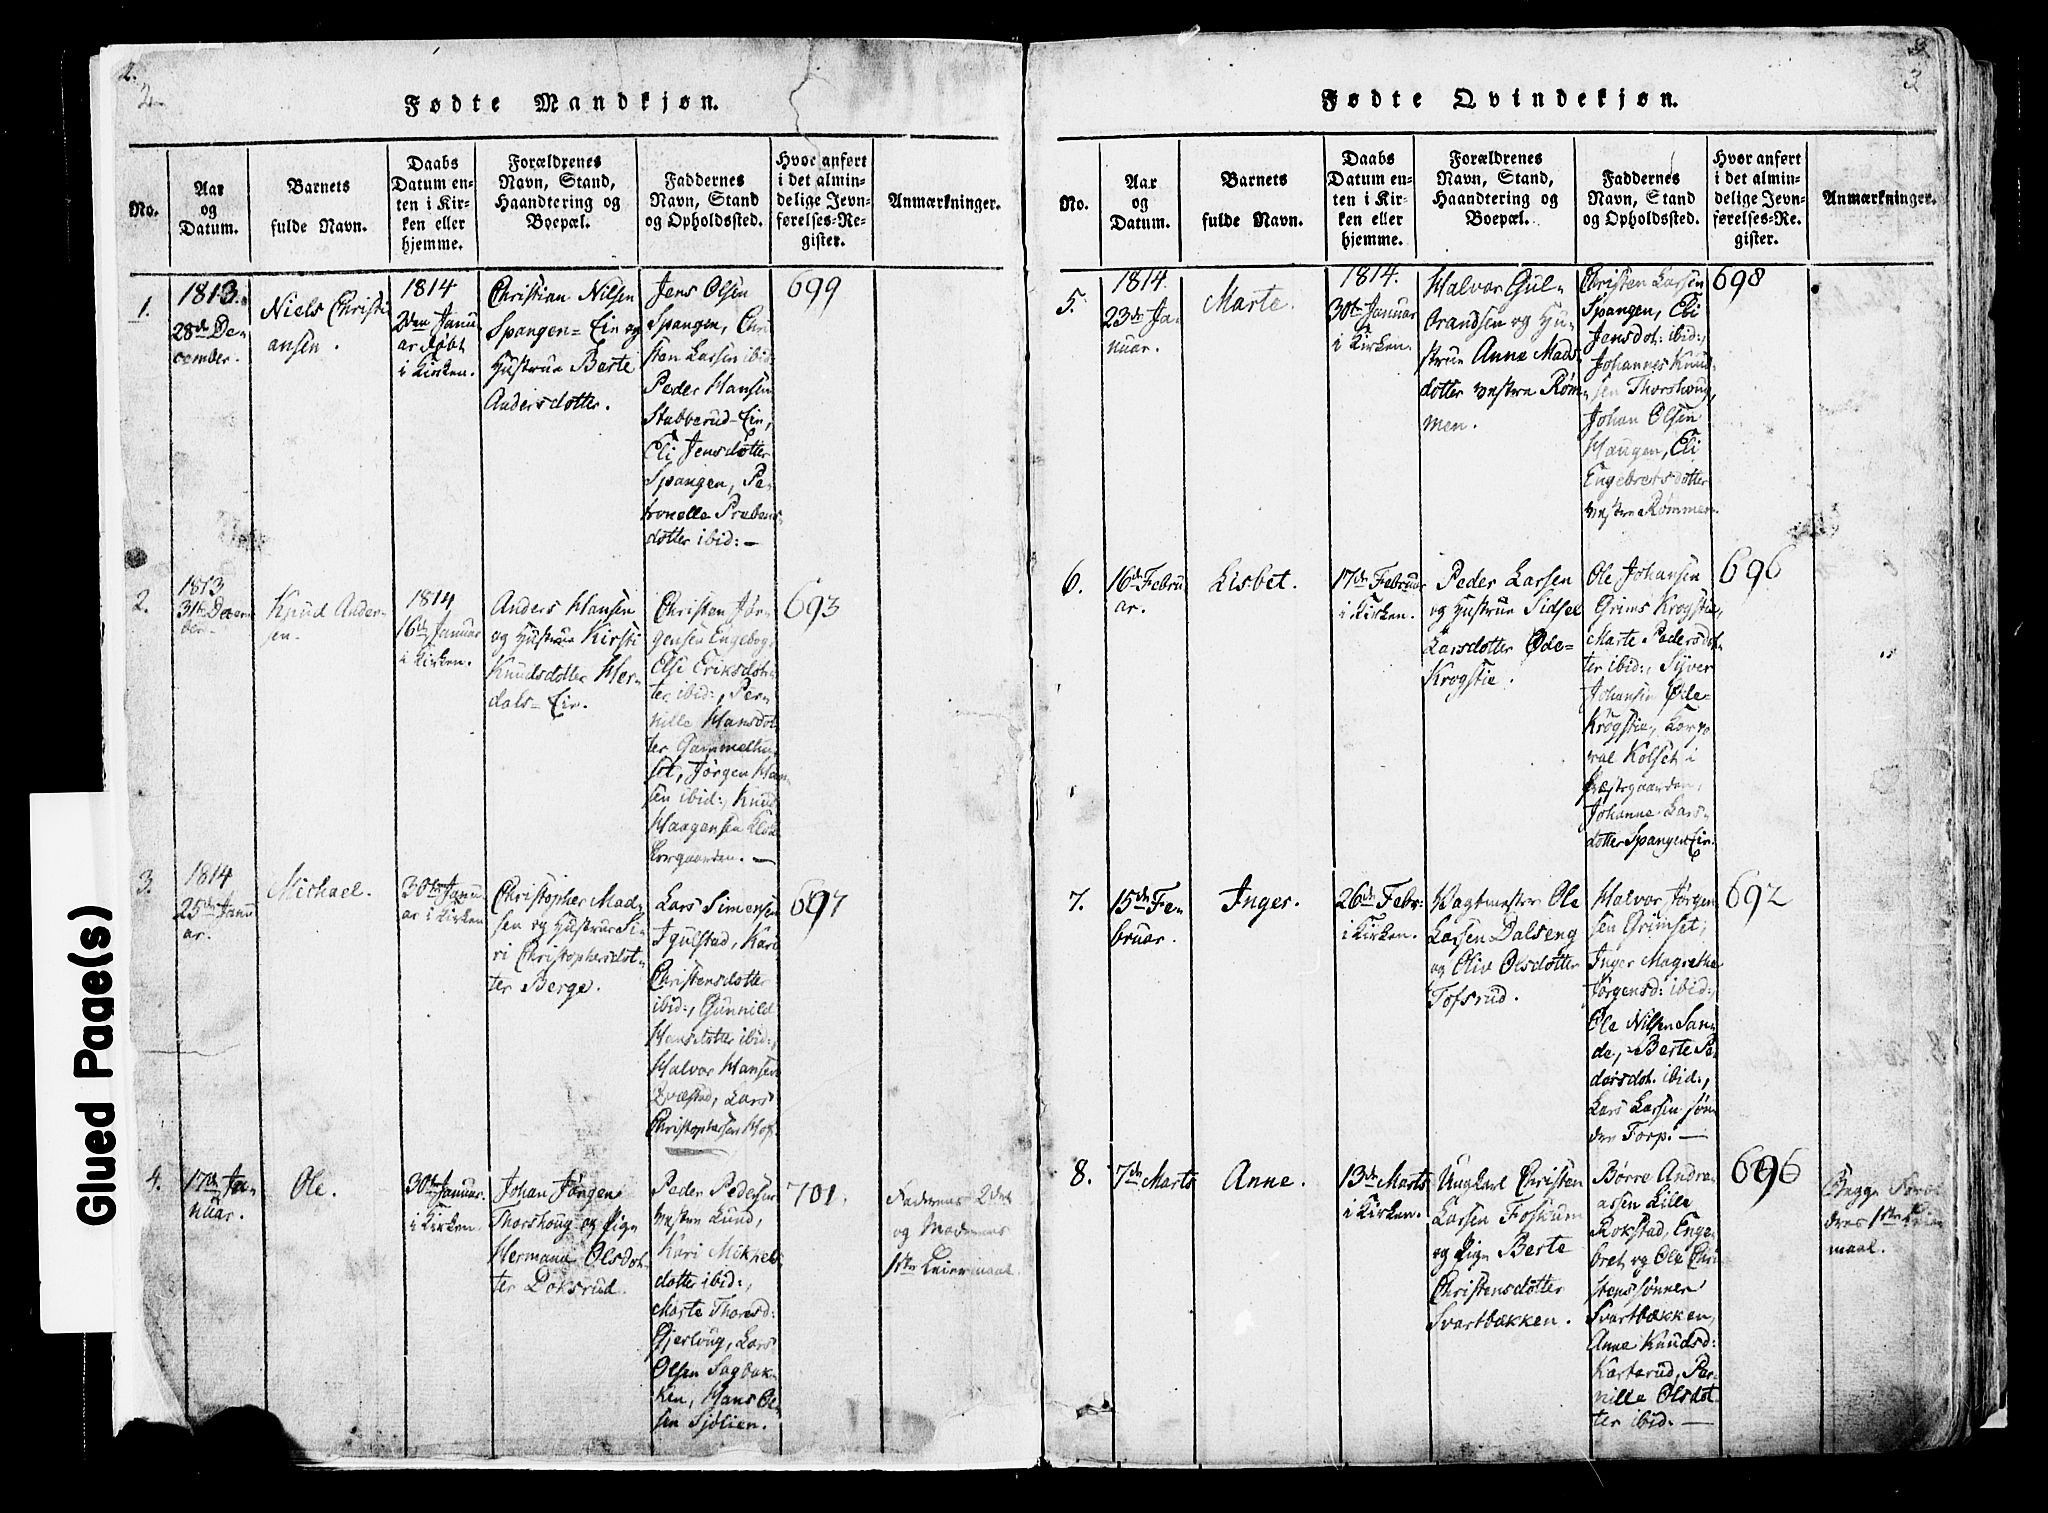 2.
2
Fødte Mandkjøn.
No.
Aar
og
Datum.
Barnets
fulde Navn.
Daabs
Datum en-
ten i Kir-
ken eller
hjemme.
Forældrenes
Navn, Stand,
Haandtering og
Boepæl.
Faddernes
Navn, Stand
og Opholdssted.
Hvor anført
i det almin-
delige Jevn-
førelses-Re-
gister.
Anmærkninger.
1.
1813.
28de De-
cember.
Niels Christi
ansen.
1814
2den Janu
ar døbt
i Kirken.
Christian Nilsen
Spangen-Eie og
Hustrue Berte
Andersdotter.
Jens Olsen
Spangen, Chri
sten Larsen ibid:
Peder Hansen
Stubberud-Eie,
Eli Jensdotter
Spangen, Pe-
tronelle Prebens
dotter ibid:-
699
2.
1813
31te Decem
ber.
Knud Ander-
sen.
1814
16de Januar
i Kirken.
Anders Hansen
og Hustrue Kirsti
Knudsdotter Her-
dals-Eie.
Christen Jør-
gensen Engebog
Else Eriksdot-
ter ibid:, Per-
nille Hansdot
ter Gammelhu-
set, Jørgen Han
sen ibid:, Knud
Haagensen Klok
kergaarden. —
693
3.
1814
25de Janu
ar.
Michael.
30te Janu
ar i Kirken
Christopher Mad-
sen og Hustrue Si-
ri Christophersdot-
ter Berge.
Lars Simensen
Igulstad, Kari
Christensdotter
ibid:, Gunnild
Hansdotter ibid:,
Halvor Hansen
Qvæstad, Lars
Christophersen Hof.
697
4.
17de Ja-
nuar.
Ole.
30te Januar.
i Kirken.
Johan Jørgen
Thorshoug og Pige
Hermana Olsdot-
ter Doksrud.
Peder Pedersen
vestre Lund,
Kari Mikkels
dotter ibid:,
Marte Thorsd:
Gjerloug, Lars
Olsen Sagbak-
ken, Hans Ol-
sen Sjølien.
701.
Faderens 2det
og Moderens
1ste Leiermaal.
3
3
Fødte Qvindekjøn.
No.
Aar
og
Datum.
Barnets
fulde Navn.
Daabs
Datum en-
ten i Kir-
ken eller
hjemme.
Forældrenes
Navn, Stand,
Haandtering og
Boepæl.
Faddernes
Navn, Stand
og Opholdssted.
Hvor anført
i det almin-
delige Jevn-
førelses-Re-
gister.
Anmærkninger.
5.
1814.
23de Ja-
nuar.
Marte.
1814.
30te Januar
i Kirken.
Halvor Gul-
brandsen og Hu-
strue Anne Mads-
dotter vestre Røm-
men.
Christen Larsen
Spangen, Eli
Jensdot: ibid:,
Johannes Knud-
sen Thorshoug,
Johan Olsen
Haugen, Eli
Engebretsdotter
vestre Rømmen.
698
6.
16de Febru
ar.
Lisbet.
17de Februar
i Kirken.
Peder Larsen
og Hustrue Sidsel
Larsdotter Øde-
Krogstie.
Ole Johansen
Grims Krogstie,
Marte Pedersdot-
ter ibid:, Syver
Johansen Øde-
Krogstie, Korpo
ral Kolset i
Præstegaarden,
Johanne Lars-
dotter Spangen Eie.
696
7.
15de Fe-
bruar.
Inger.
26de Febr:
i Kirken.
Vagtmester Ole
Larsen Dalseng
og Oliv Olsdotter
Tofsrud.
Halvor Jørgen
sen Grimset,
Inger Magrethe
Jørgensd: ibid:,
Ole Nilsen San-
de, Berte Pe-
dersdot. ibid:,
Lars Larsen søn
dre Torp. —
692
8.
7de Marts
Anne.
13de Marts
i Kirken.
Ungkarl Christen
Larsen Fossum
og Pige Berte
Christensdotter
Svartbækken.
Børre Andre-
assen Lille
Rokstad, Enge-
bret og Ole Chri-
stenssønner
Svartbækken,
Anne Knudsd:
Karterud, Per-
nille Olsdot-
ter ibid: —
696
Begge Foræl
dres 1ste Leier
maal.
Glued Page(s)